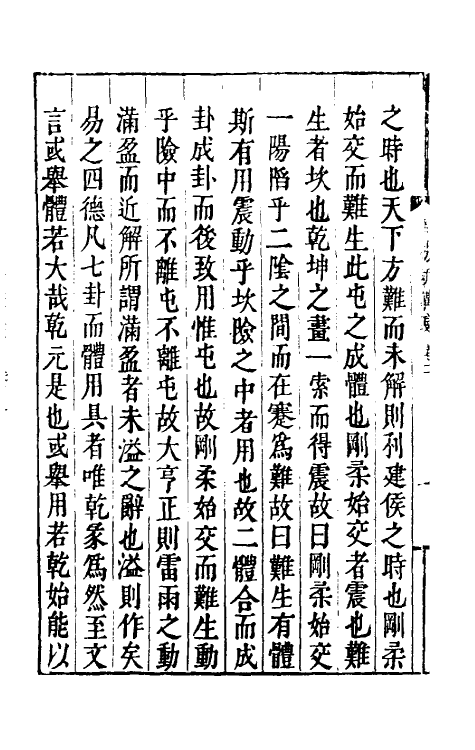 之時也天下方難而未解則利建侯之時也剛柔
始交而難生此屯之成體也剛柔始交者震也難
生者坎也乾坤之畫一索而得震故曰剛柔始交
一陽陷乎二陰之間而在蹇為難故曰難生有體
斯有用震動乎坎險之中者用也故二體合而成
卦成卦而後致用惟屯也故剛柔始交而難生動
乎險中而不離屯不離屯故大亨正則雷雨之動
滿盈而近解所謂滿盈者未溢之辭也溢則作矣
易之四德凡七卦而體用具者唯乾彖為然至文
言或舉體若大哉乾元是也或舉用若乾始能以